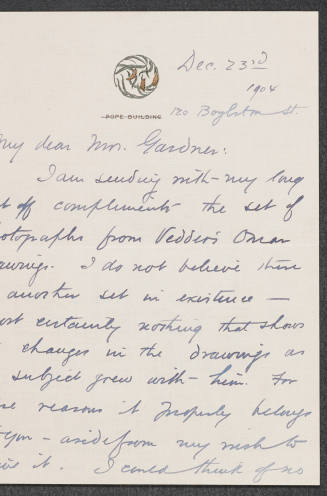 Dec. 23rd
1904
POPE BUILDING
120 Boylston St.
My dear Mrs. Gardner:
I am sending with my long
off compliments the set of
otographs from Vedder's Omar
awings. I do not believe there
another set in existence —
ost certainly nothing that shows
changes in the drawings as
subject grew with him. For
se reasons it properly belongs
you — aside from my wish to
ive it. I could think of no